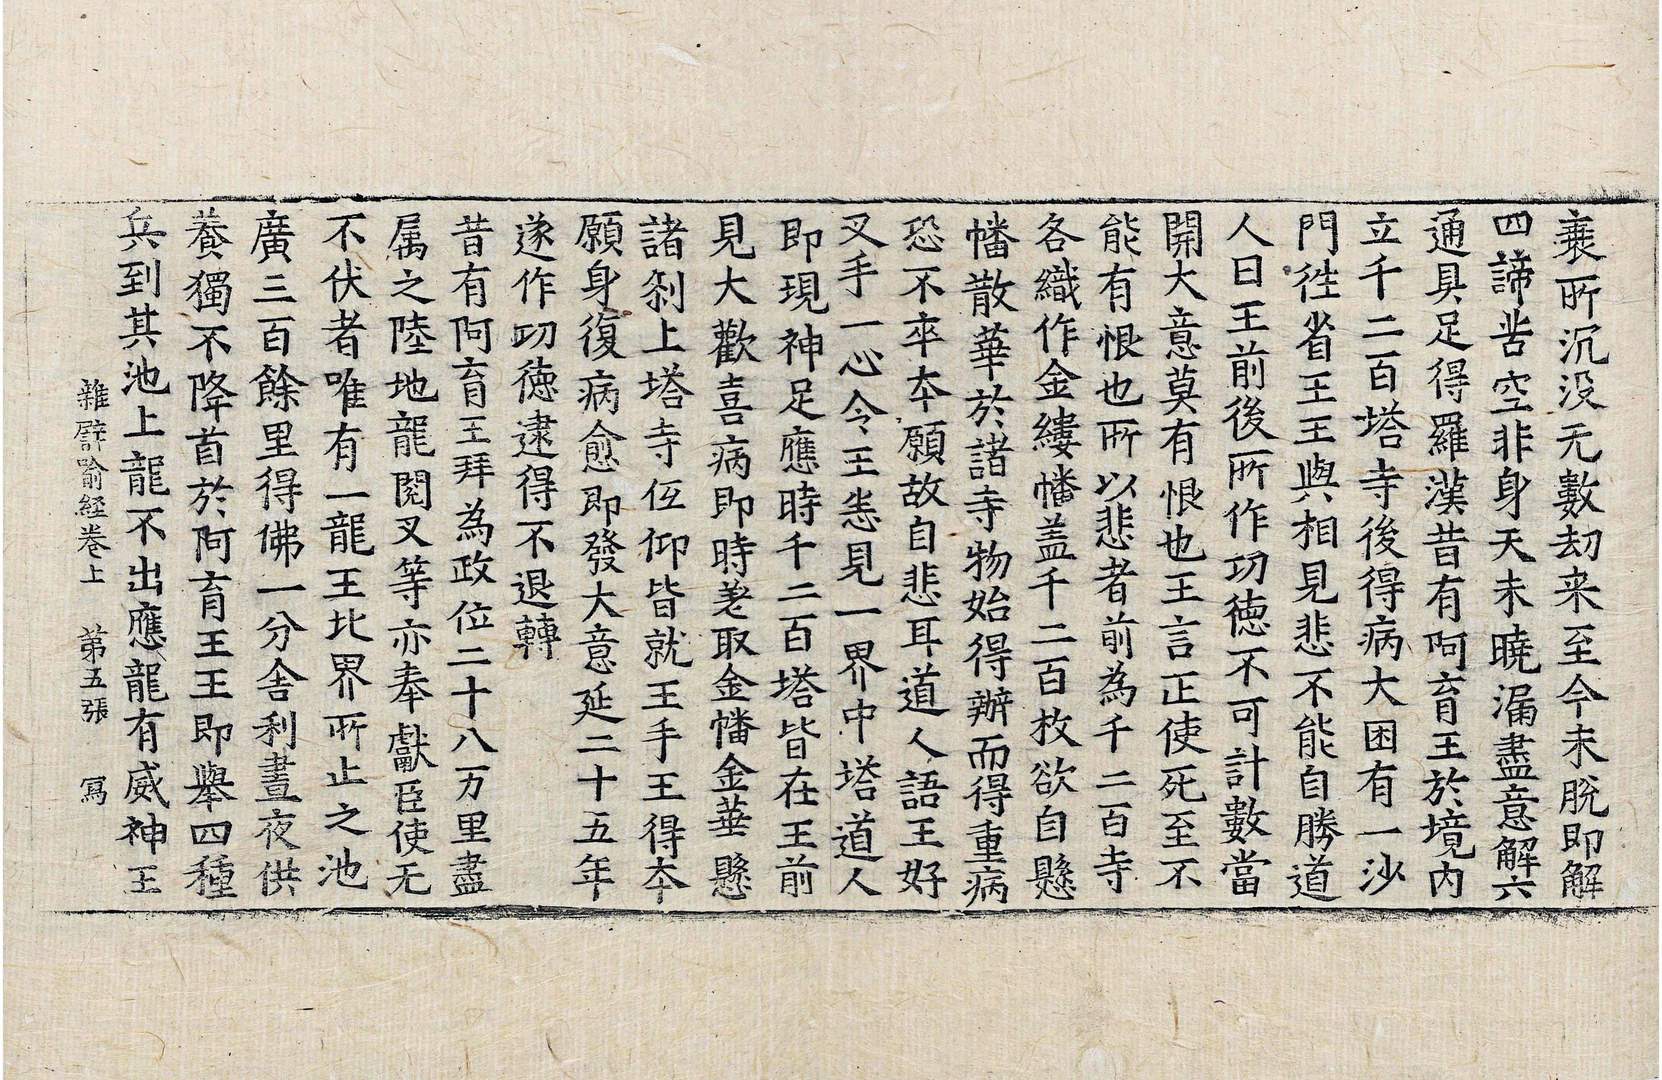 蘘所沉没无數劫来至今未脫即解
四諦苦空非身天未曉漏盡意解六
通具足得羅漢昔有阿育王於境内
立千二百塔寺後得病大困有一沙
門徃省王王與相見悲不能自勝道
人曰王前後所作功徳不可計數當
開大意莫有恨也王言正使死至不
能有恨也所以悲者前為千二百寺
各織作金縷幡盖千二百枚欲自懸
幡散華於諸寺物始得辦而得重病
恐不卒夲願故自悲耳道人語王好
叉手一心令王恚見一界中塔道人
即現神足應時千二百塔皆在王前
見大歡喜病即時差取金幡金華懸
諸刹上塔寺伍仰皆就王手王得夲
願身復病愈即發大意延二十五年
遂作功徳逮得不退轉
昔有阿育王拜為政位二十八万里盡
属之陸地龍閱叉等亦奉獻臣使无
不伏者唯有一龍王北界所止之池
廣三百餘里得佛一分舍利晝夜供
養獨不降首於阿育王王即舉四種
兵到其池上龍不出應龍有威神王
雜譬喻経卷上 第五張 冩